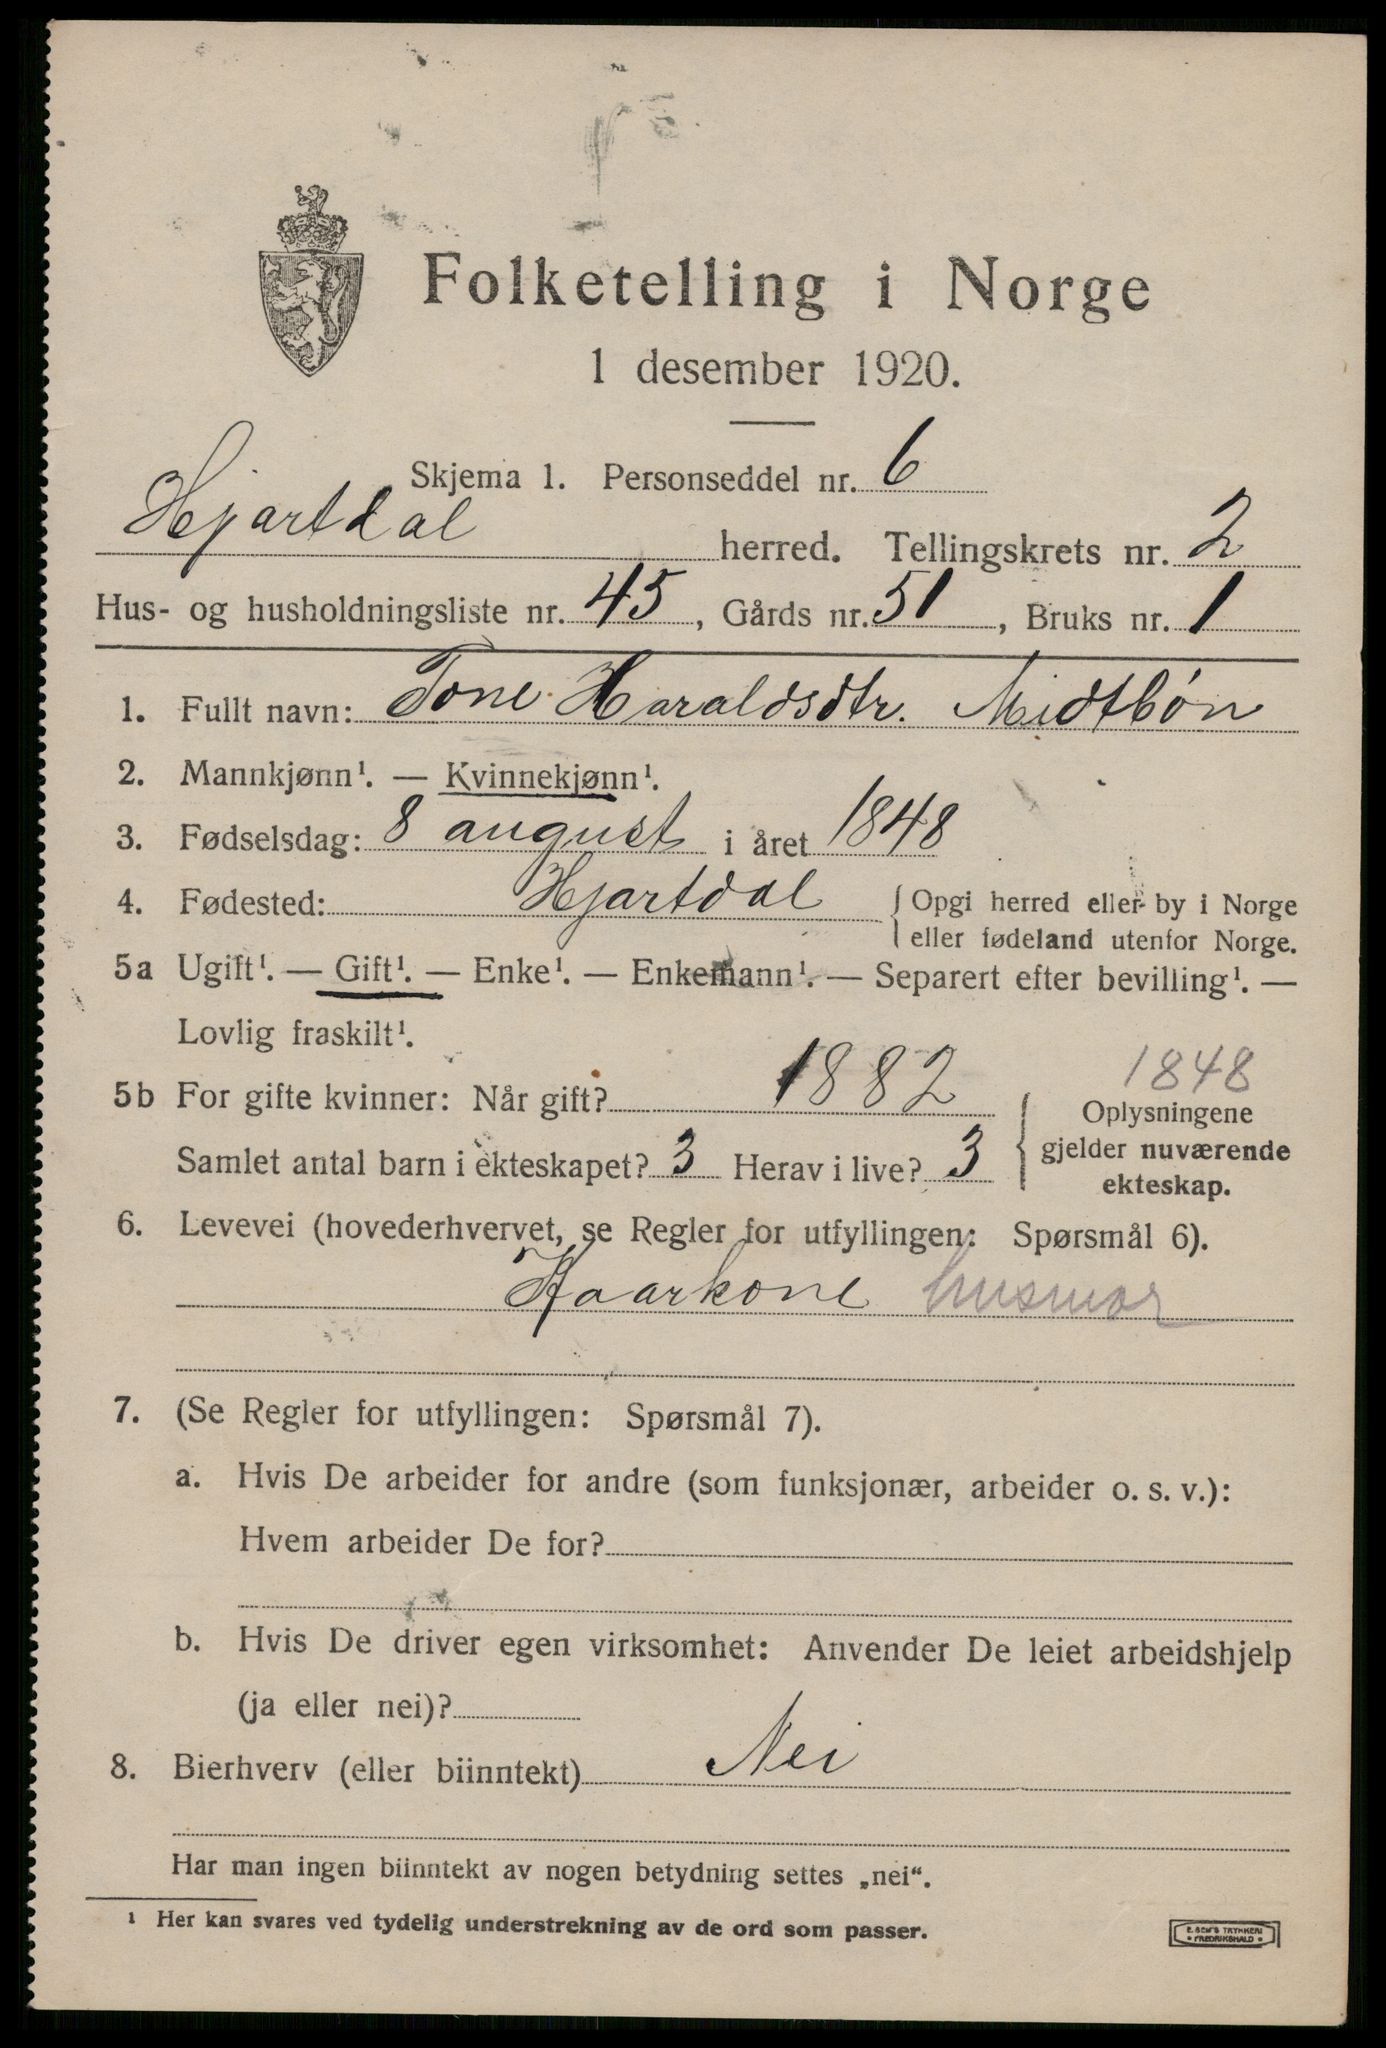 Folketelling i Norge
1 desember 1920.
Skjema 1. Personseddel nr. 6
Hjartdal herred. Tellingskrets nr. 2
Hus- og husholdningsliste nr. 45, Gårds nr. 51, Bruks nr. 1
1. Fullt navn: Tone Haraldsdtr. Midtbön
2. Mannkjønn¹. — Kvinnekjønn¹.
3. Fødselsdag: 8 august i året 1848
4. Fødested: Hjartdal { Opgi herred eller by i Norge
eller fødeland utenfor Norge.
5a Ugift¹. — Gift¹. — Enke¹. — Enkemann¹. — Separert efter bevilling¹. —
Lovlig fraskilt¹.
1848
5b For gifte kvinner: Når gift? 1882 { Oplysningene
gjelder nuværende
Samlet antal barn i ekteskapet? 3 Herav i live? 3
ekteskap.
6. Levevei (hovederhvervet, se Regler for utfyllingen: Spørsmål 6).
Kaarkone husmor
7. (Se Regler for utfyllingen: Spørsmål 7).
a. Hvis De arbeider for andre (som funksjonær, arbeider o. s. v.):
Hvem arbeider De for?
b. Hvis De driver egen virksomhet: Anvender De leiet arbeidshjelp
(ja eller nei)?
8. Bierhverv (eller biinntekt) Nei
Har man ingen biinntekt av nogen betydning settes „nei“.
¹ Her kan svares ved tydelig understrekning av de ord som passer.
E. SEM'S TRYKKERI
• FREDRIKSHALD •